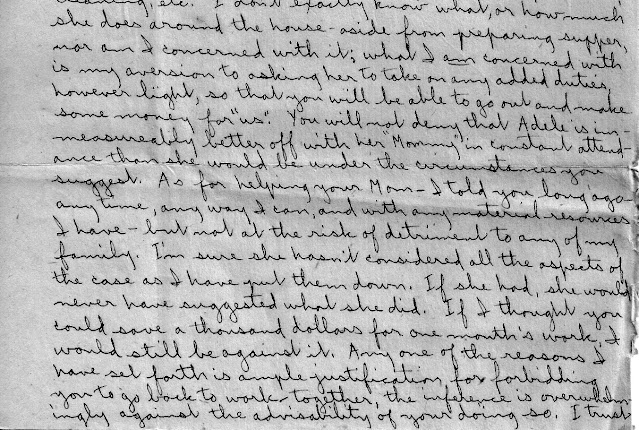 cleaning, etc. I don't exactly know what, or how much
she does around the house - aside from preparing supper,
nor am I concerned with it; what I am concerned with
is my aversion to asking her to take on any added duties,
however light, so that you will be able to go out and make
some money for "us". You will not deny that Adele is im-
measureably better off with her "Mommy" in constant attend-
ance than she would be under the circumstances you
suggest. As for helping your Mom - I told you long ago
anytime, any way I can, and with any material resources
I have - but not at the risk of detriment to any of my
family. I'm sure she hasn't considered all the aspects of
the case as I have put them down. If she had, she would
never have suggested what she did. If I thought you
could save a thousand dollars for one month's work, I
would still be against it. Any one of the reasons I
have set forth is ample justification for forbidding
you to go back to work - together, the inference is overwhelm-
ingly against the advisability of your doing so. I trust